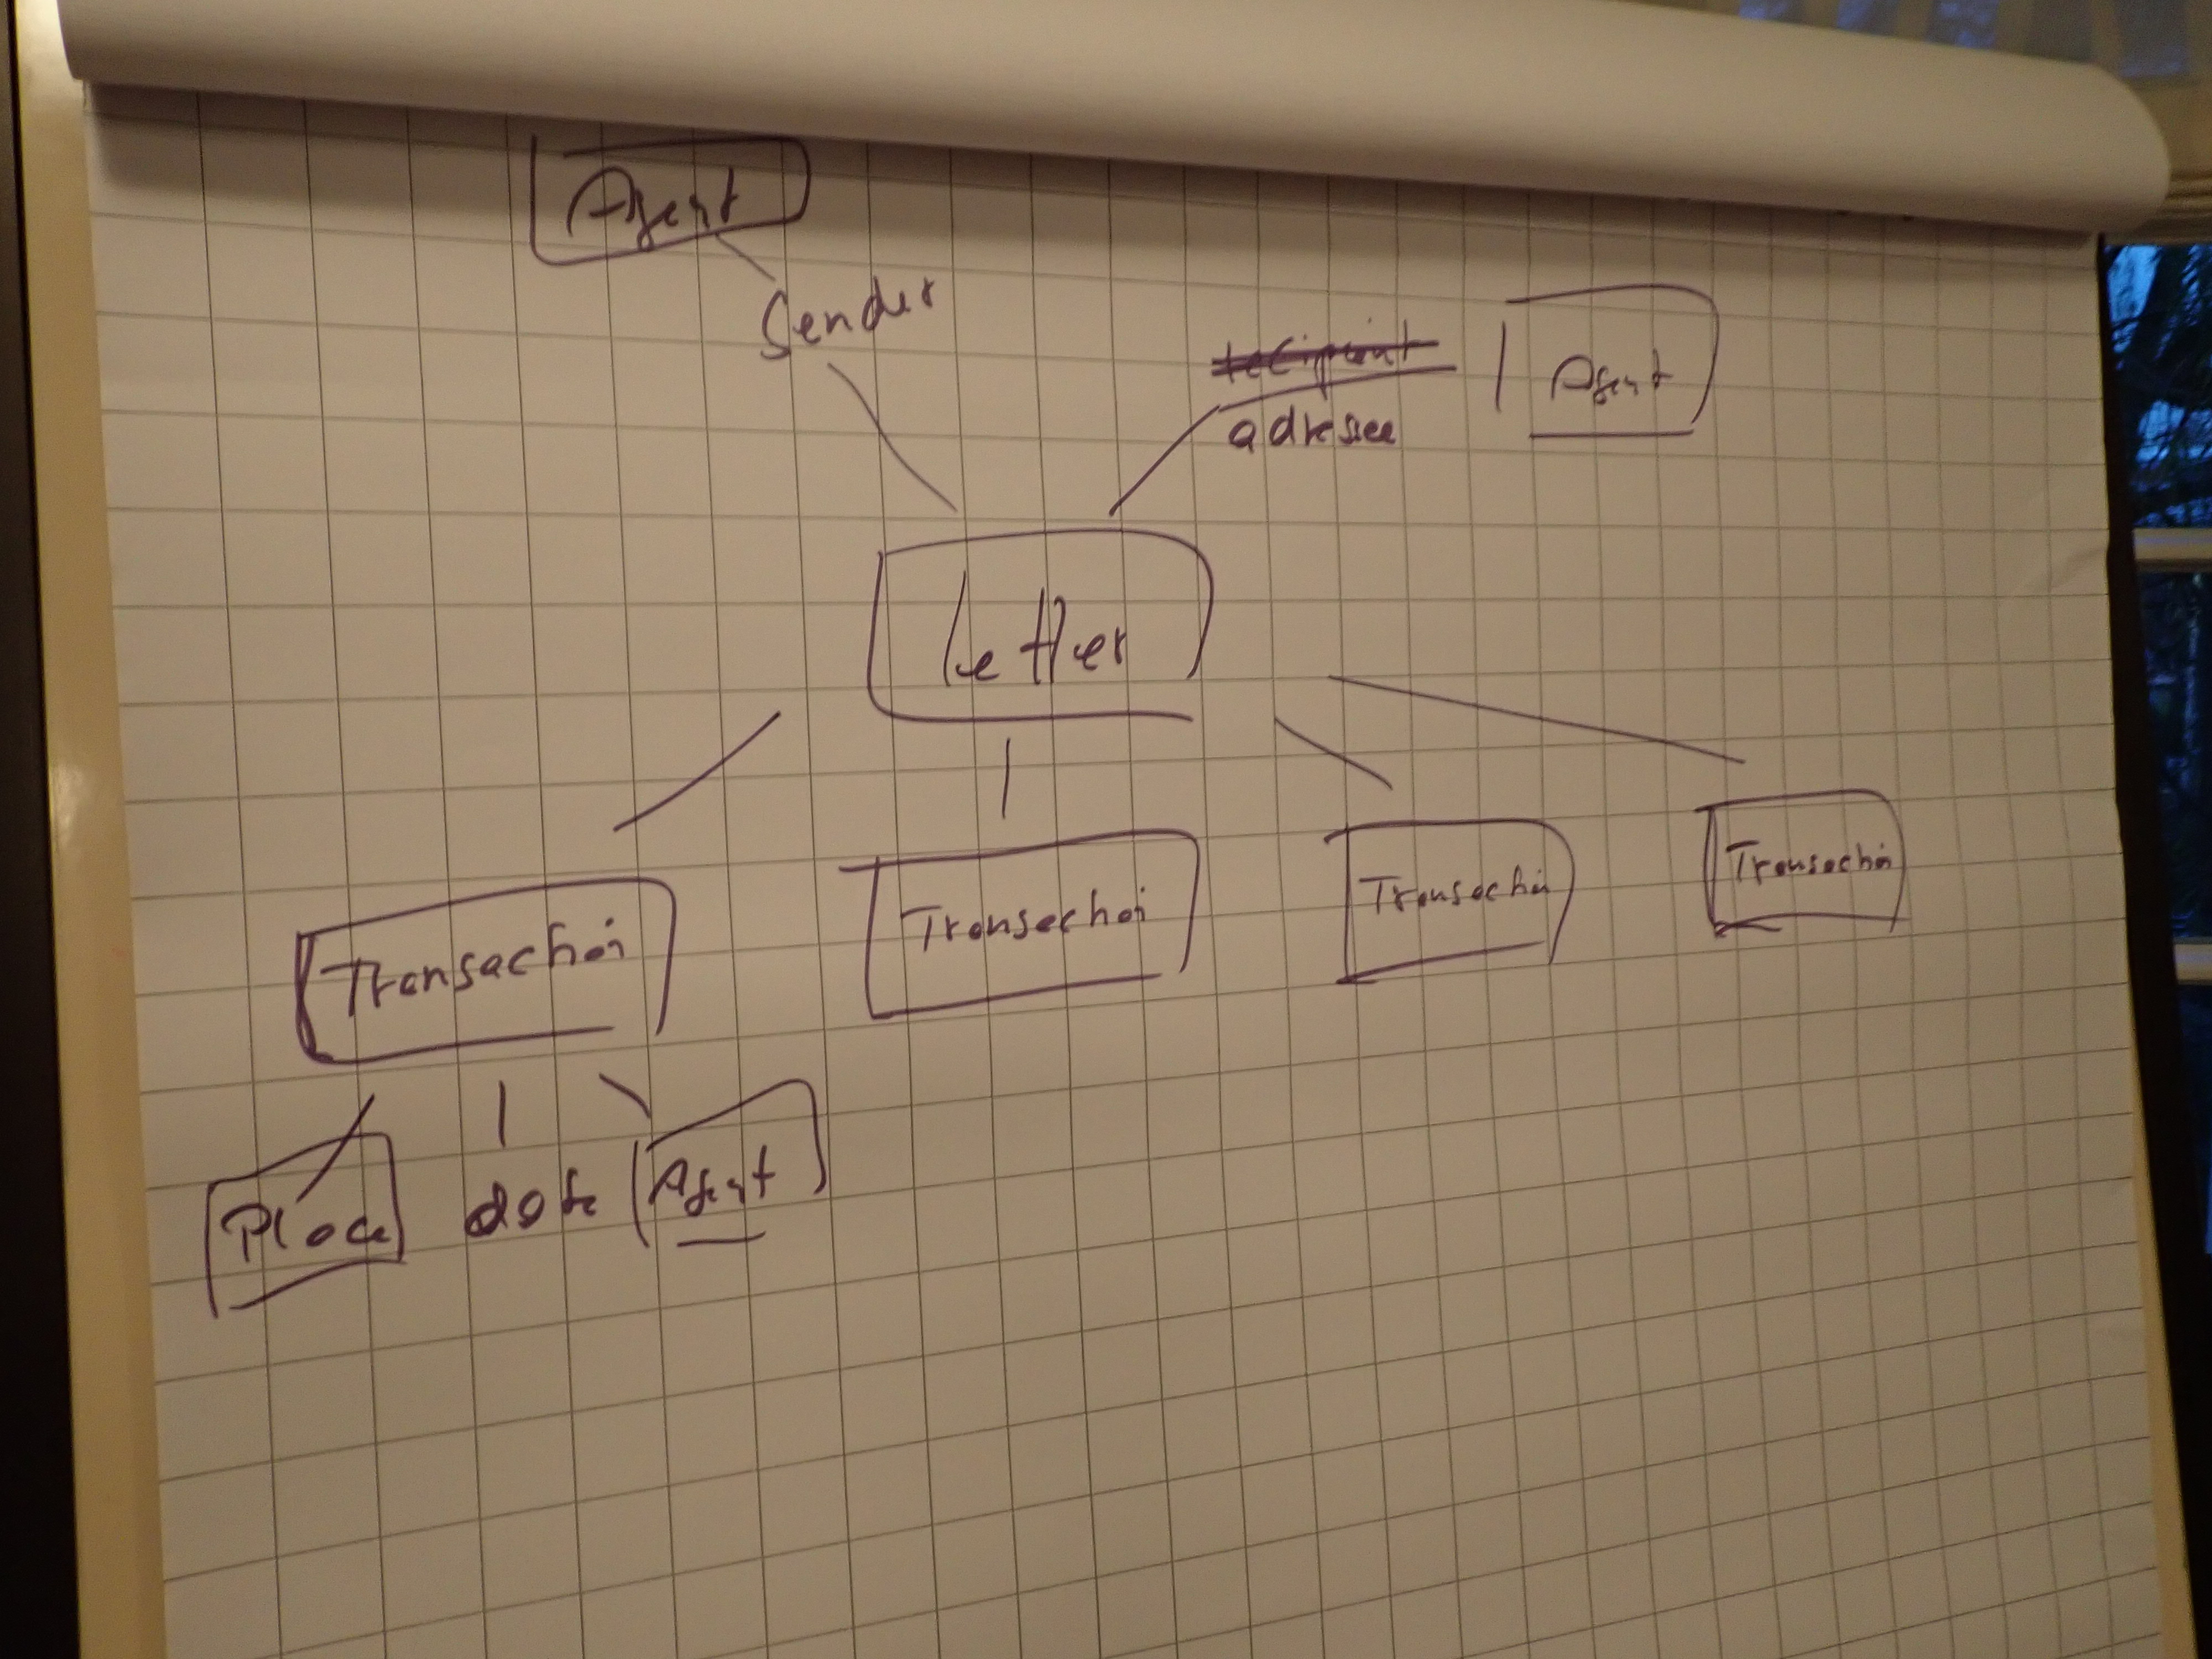 Agent
Sender
recipient
Agent
adressee
letter
Transaction
Transaction
Transaction
Transaction
Place
date
Agent